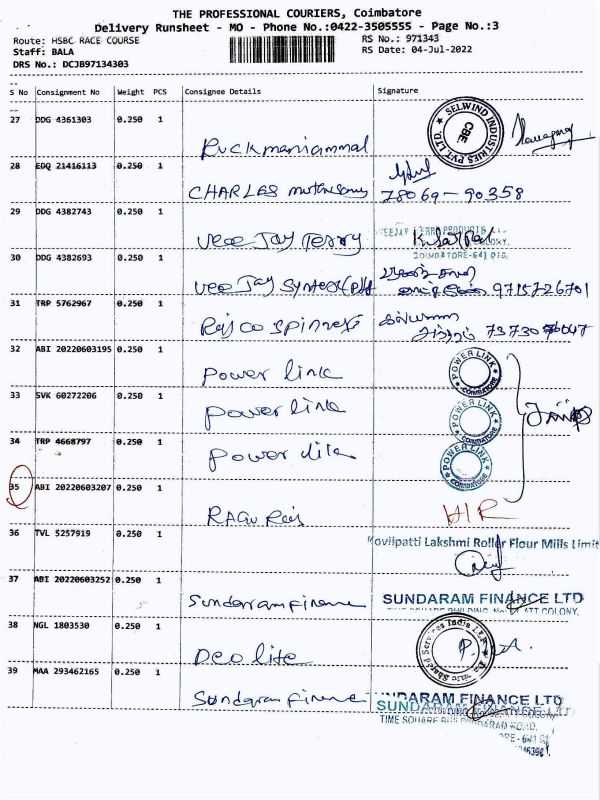 THE PROFESSIONAL COURIERS, Coimbatore
Delivery Runsheet - MO - Phone No.:0422-3505555 - Page No.:3
Route: HSBC RACE COURSE RS No.: 971343
Staff: BALA RS Date: 04-Jul-2022
DRS No.: DCJB97134303
S No Consignment No Weight PCS Consignee Details Signature
27 DDG 4361303 0.250 1
SELWIND INDUSTRIES PVT. LTD. CBE.
Ruckmaniammal
28 EDQ 21416113 0.250 1
CHARLES 78069-90358
29 DDG 4382743 0.250 1
Vee Jay Terry
COIMBATORE-641 018.
30 DDG 4382693 0.250 1
Vee Jay Syntex 97157-26701
31 TRP 5762967 0.250 1
Rajco spinners
32 ABI 20220603195 0.250 1
Power link POWER LINK COIMBATORE
33 SVK 60272206 0.250 1
Power link POWER LINK COIMBATORE
34 TRP 4668797 0.250 1
Power link POWER LINK COIMBATORE
35 ABI 20220603207 0.250 1
RAGU Raj H/R
36 TVL 5257919 0.250 1
Kovilpatti Lakshmi Roller Flour Mills Limit
37 ABI 20220603252 0.250 1
Sundaram Finance SUNDARAM FINANCE LTD
38 NGL 1803530 0.250 1
Deolite
39 MAA 293462165 0.250 1
Sundaram Finance SUNDARAM FINANCE LTD